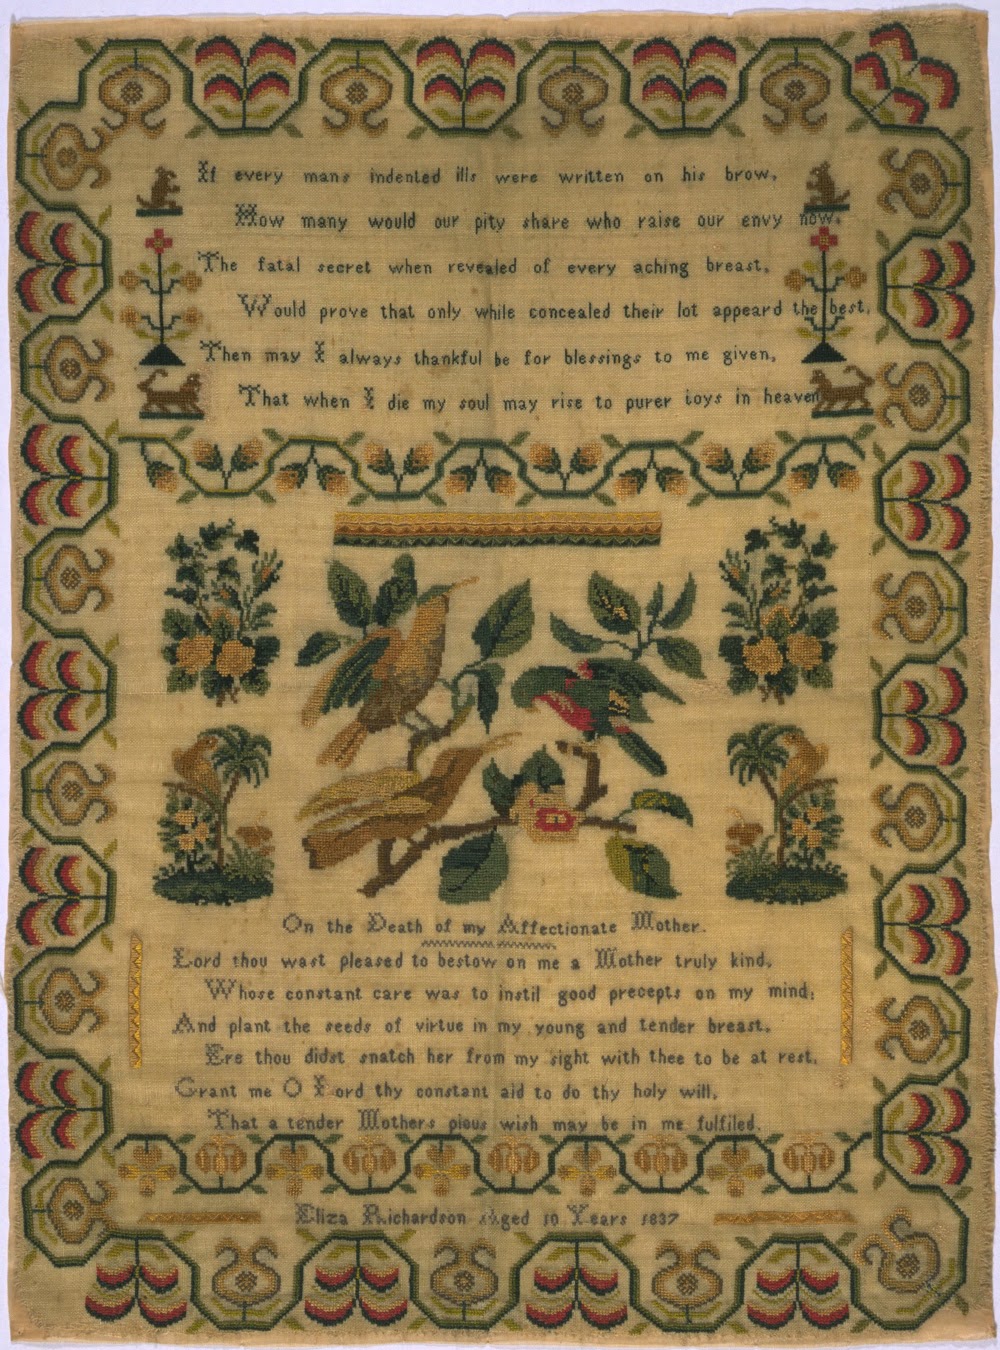 If every mans indented ills were written on his brow,
How many would our pity share who raise our envy now.
The fatal secret when revealed of every aching breast,
Would prove that only while concealed their lot appeard the best,
Then may I always thankful be for blessings to me given,
That when I die my soul may rise to purer ioys in heaven
On the Death of my Affectionate Mother.
Lord thou wast pleased to bestow on me a Mother truly kind,
Whose constant care was to instil good precepts on my mind;
And plant the seeds of virtue in my young and tender breast,
Ere thou didst snatch her from my sight with thee to be at rest,
Grant me O Lord thy constant aid to do thy holy will,
That a tender Mothers pious wish may be in me fulfiled.
Eliza Richardson Aged 10 Years 1837